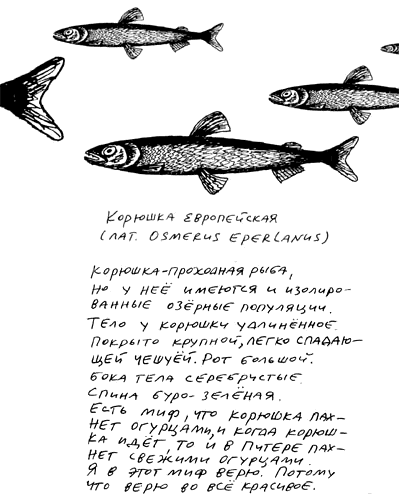 Корюшка европейская
(лат. Osmerus eperlanus)
Корюшка-проходная рыба,
но у неё имеются и изолиро-
ванные озёрные популяции.
Тело у корюшки удлинённое.
Покрыто крупной, легко спадаю-
щей чешуёй. Рот большой.
Бока тела серебристые.
Спина буро-зелёная.
Есть миф, что корюшка пах-
нет огурцами, и когда корюш-
ка идёт, то и в Питере пах-
нет свежими огурцами.
Я в этот миф верю. Потому
что верю во всё красивое.